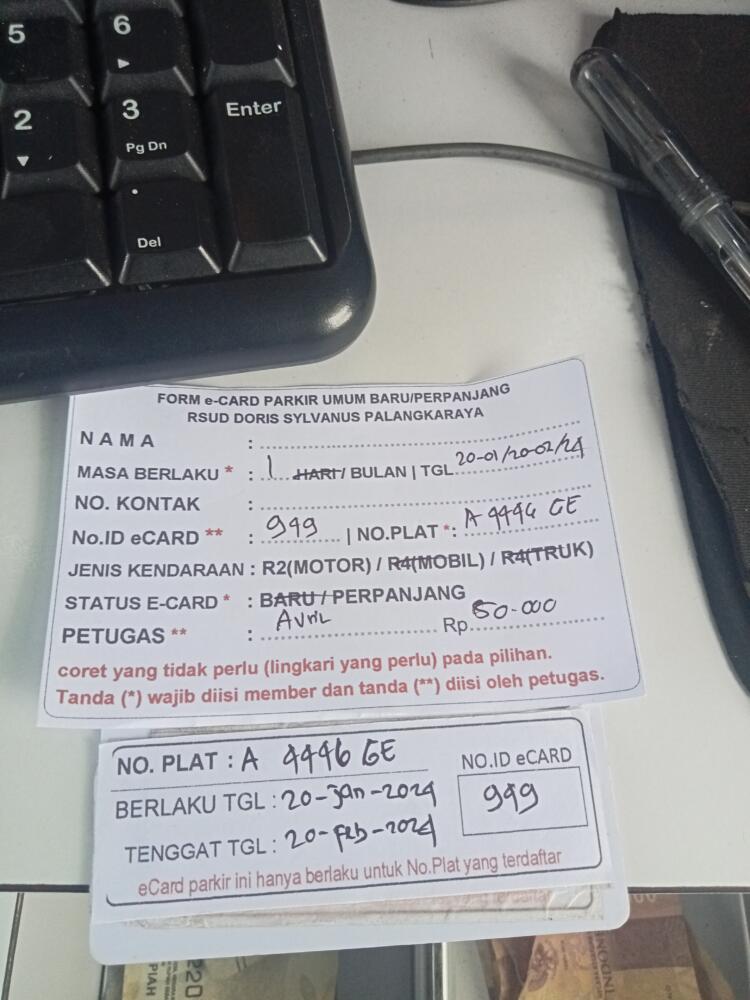 5
6
2
3
Pg Dn
Enter
Del
FORM e-CARD PARKIR UMUM BARU/PERPANJANG
RSUD DORIS SYLVANUS PALANGKARAYA
NAMA :
MASA BERLAKU * : 1 HARI / BULAN | TGL 20-01/20-02/24
NO. KONTAK :
No.ID eCARD ** : 949 | NO.PLAT *: A 4446 GE
JENIS KENDARAAN : R2(MOTOR) / R4(MOBIL) / R4(TRUK)
STATUS E-CARD * : BARU / PERPANJANG
PETUGAS ** : Avril Rp 50.000
coret yang tidak perlu (lingkari yang perlu) pada pilihan.
Tanda (*) wajib diisi member dan tanda (**) diisi oleh petugas.
NO. PLAT : A 4446 GE
NO.ID eCARD
BERLAKU TGL : 20-Jan-2024
949
TENGGAT TGL : 20-Feb-2024
eCard parkir ini hanya berlaku untuk No.Plat yang terdaftar